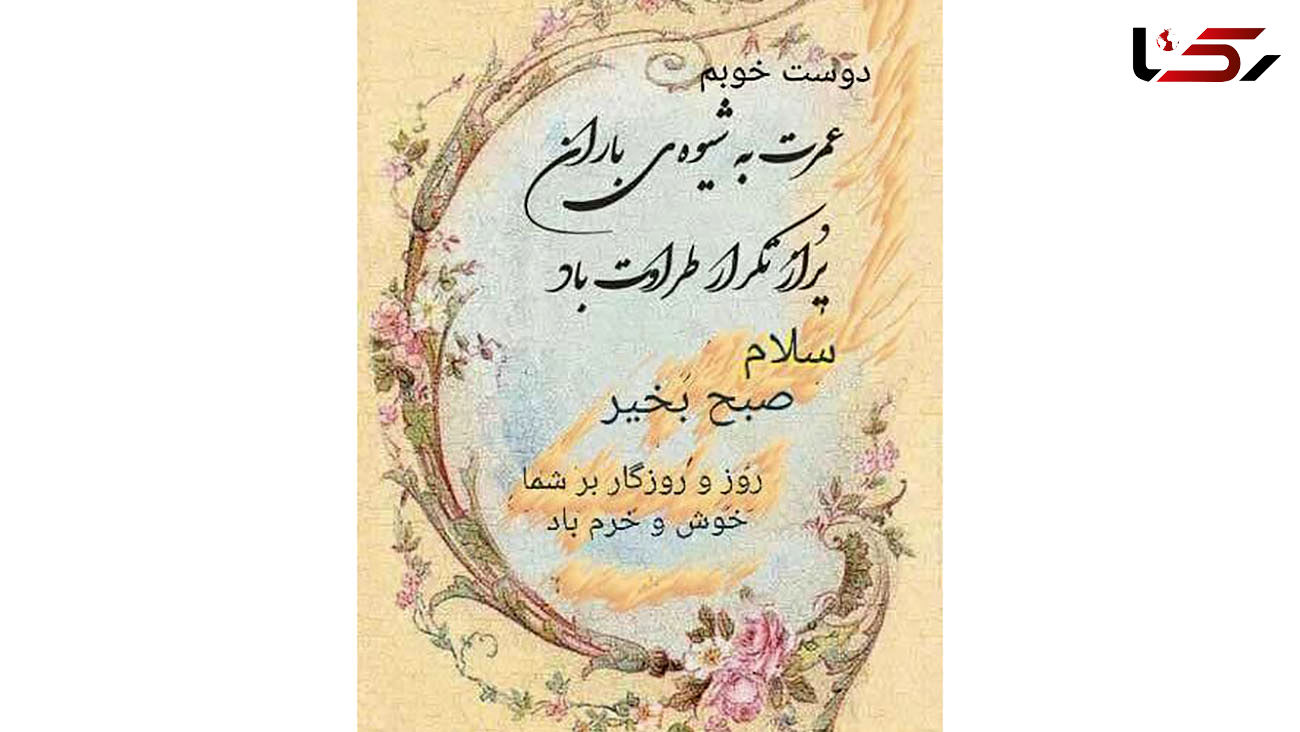 رکنا
دوست خوبم
عمرت به شیوه‌ی باران
پُر از تکرار طراوت باد
سلام
صبح بخیر
روز و روزگار بر شما
خوش و خرم باد